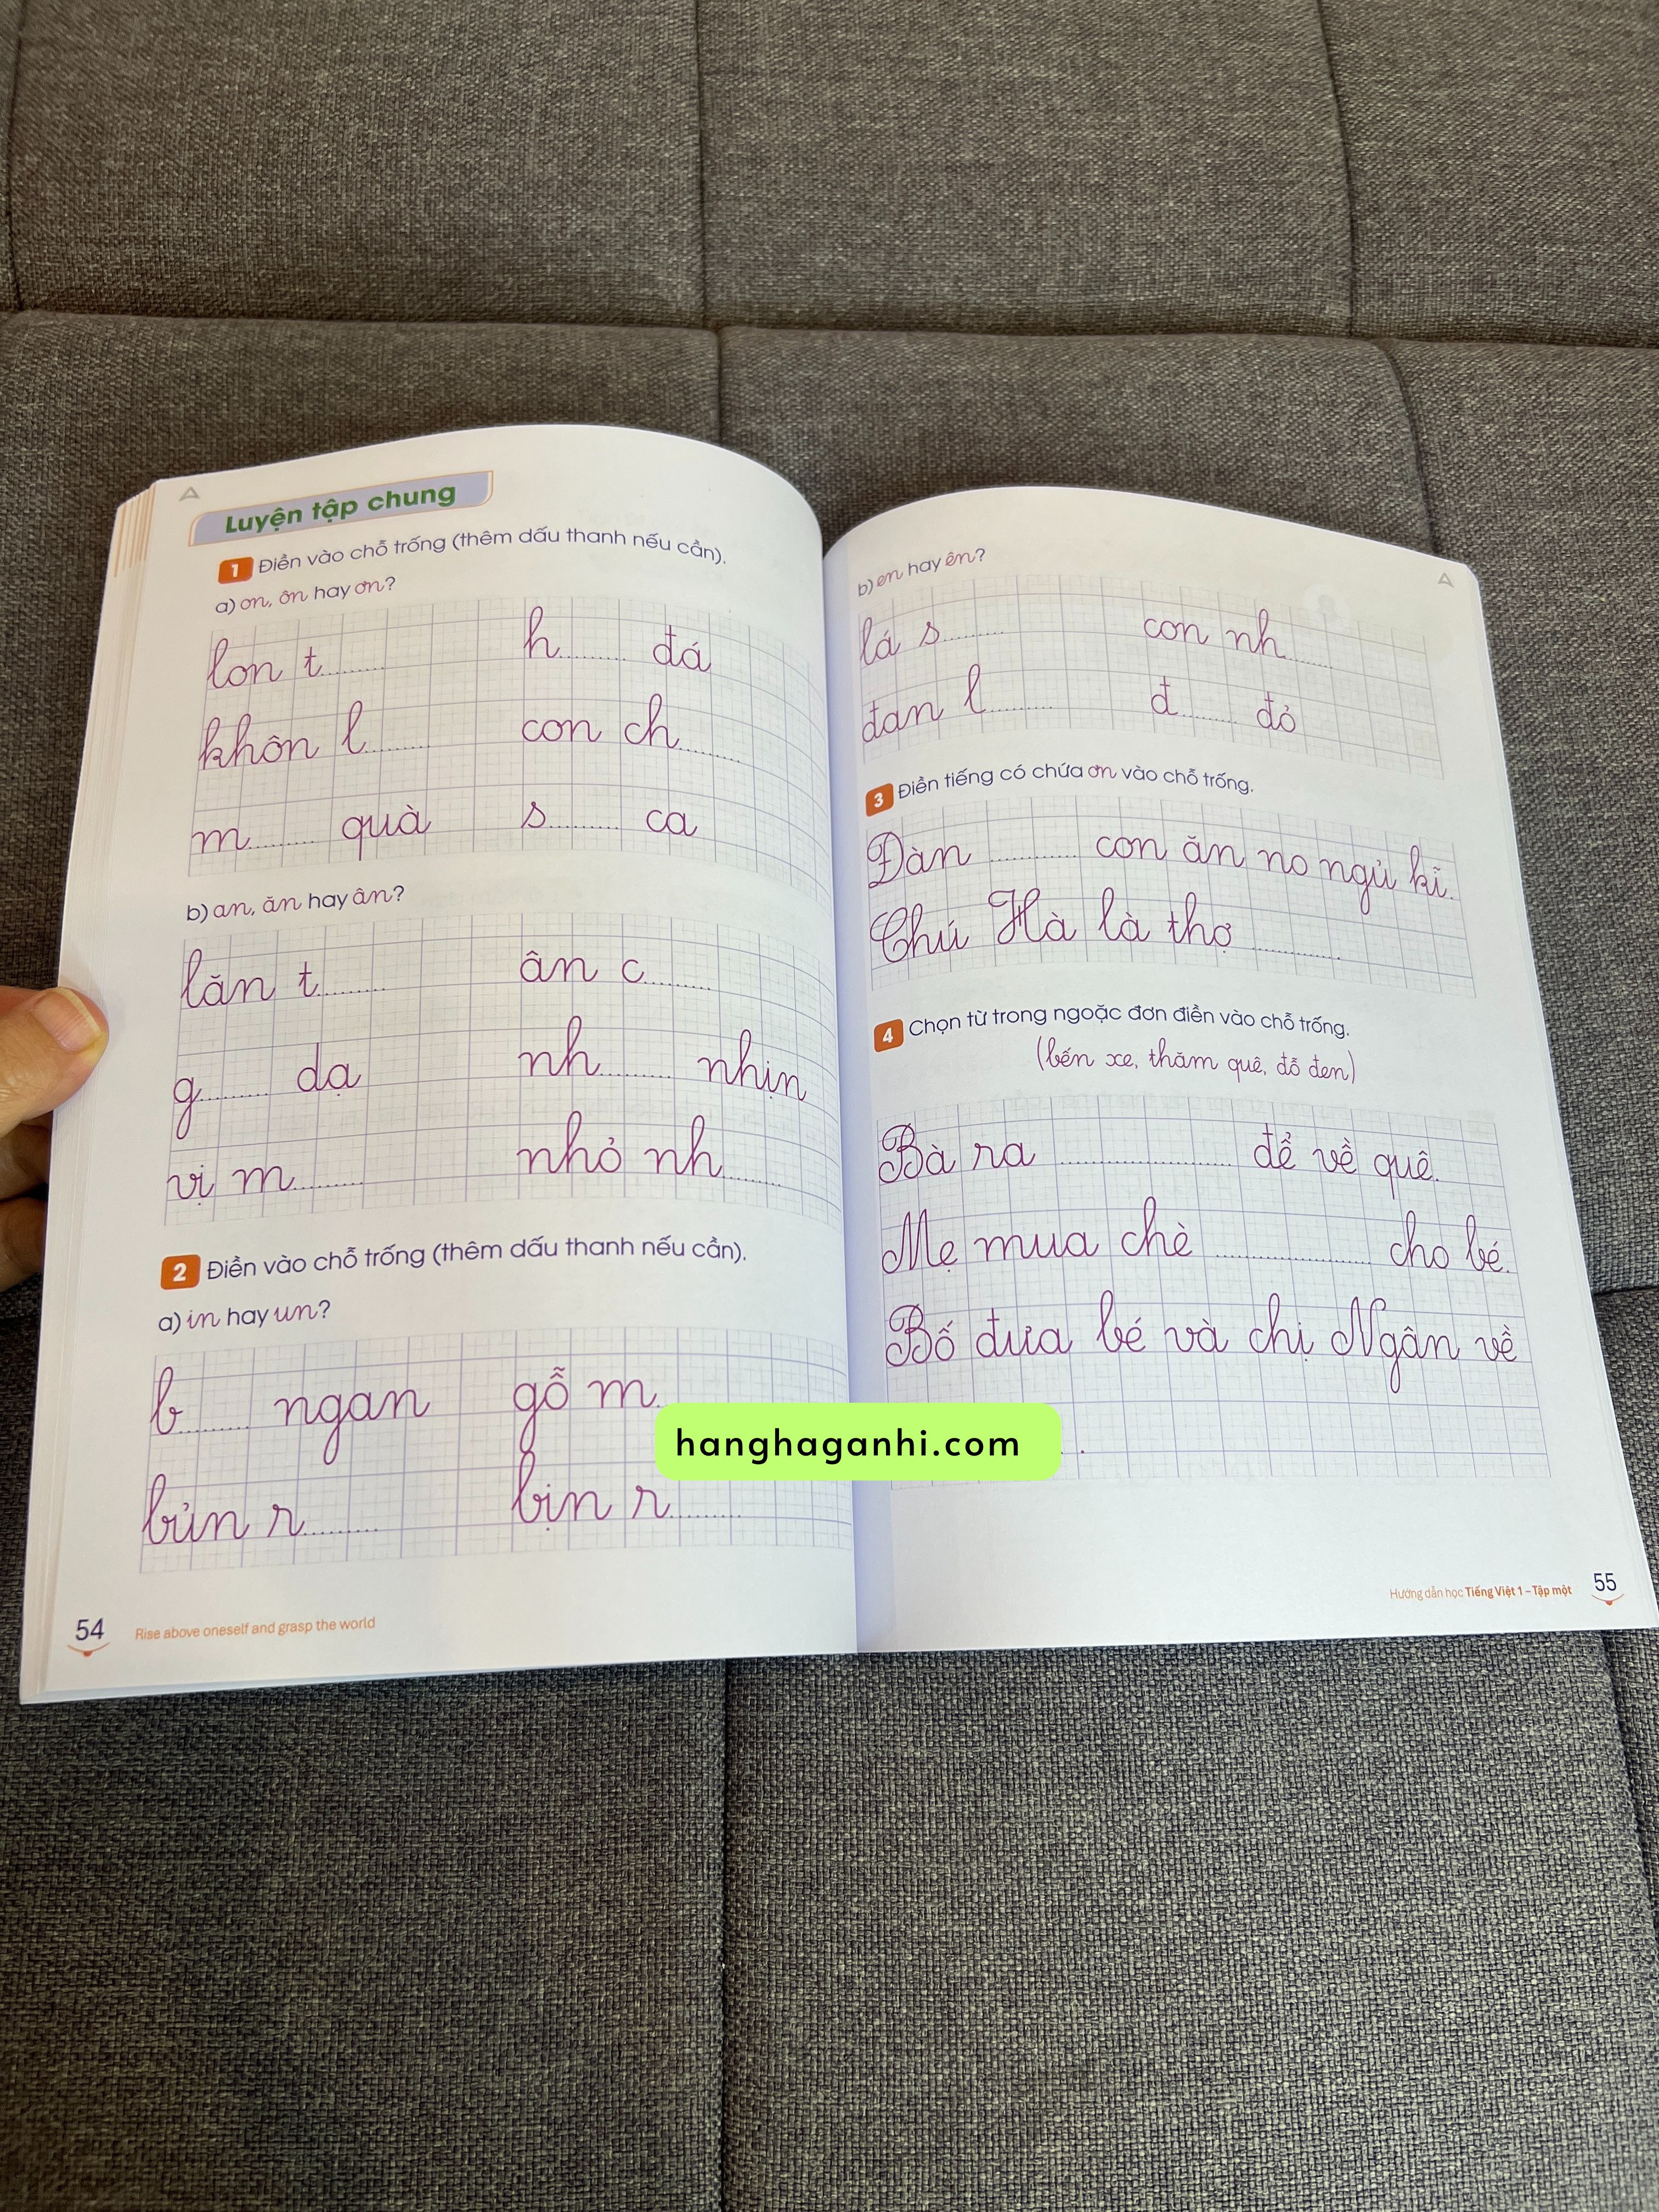 Luyện tập chung
1 Điền vào chỗ trống (thêm dấu thanh nếu cần).
a) on, ôn hay ơn?
lon t.......... h.......... đá
khôn l.......... con ch..........
m.......... quà s.......... ca
b) an, ăn hay ân?
lăn t.......... ân c..........
g.......... dạ nh.......... nhịn
vị m.......... nhỏ nh..........
2 Điền vào chỗ trống (thêm dấu thanh nếu cần).
a) in hay un?
b.......... ngan gỗ m.
bủn r.......... bịn r..........
54 Rise above oneself and grasp the world
b) en hay ên?
lá s.......... con nh..........
đan l.......... đ.......... đỏ
3 Điền tiếng có chứa ơn vào chỗ trống.
Đàn .......... con ăn no ngủ kĩ.
Chú Hà là thợ ..........
4 Chọn từ trong ngoặc đơn điền vào chỗ trống.
(bến xe, thăm quê, đỗ đen)
Bà ra .......... để về quê.
Mẹ mua chè .......... cho bé.
Bố đưa bé và chị Ngân về
.
hanghaganhi.com
Hướng dẫn học Tiếng Việt 1 – Tập một 55